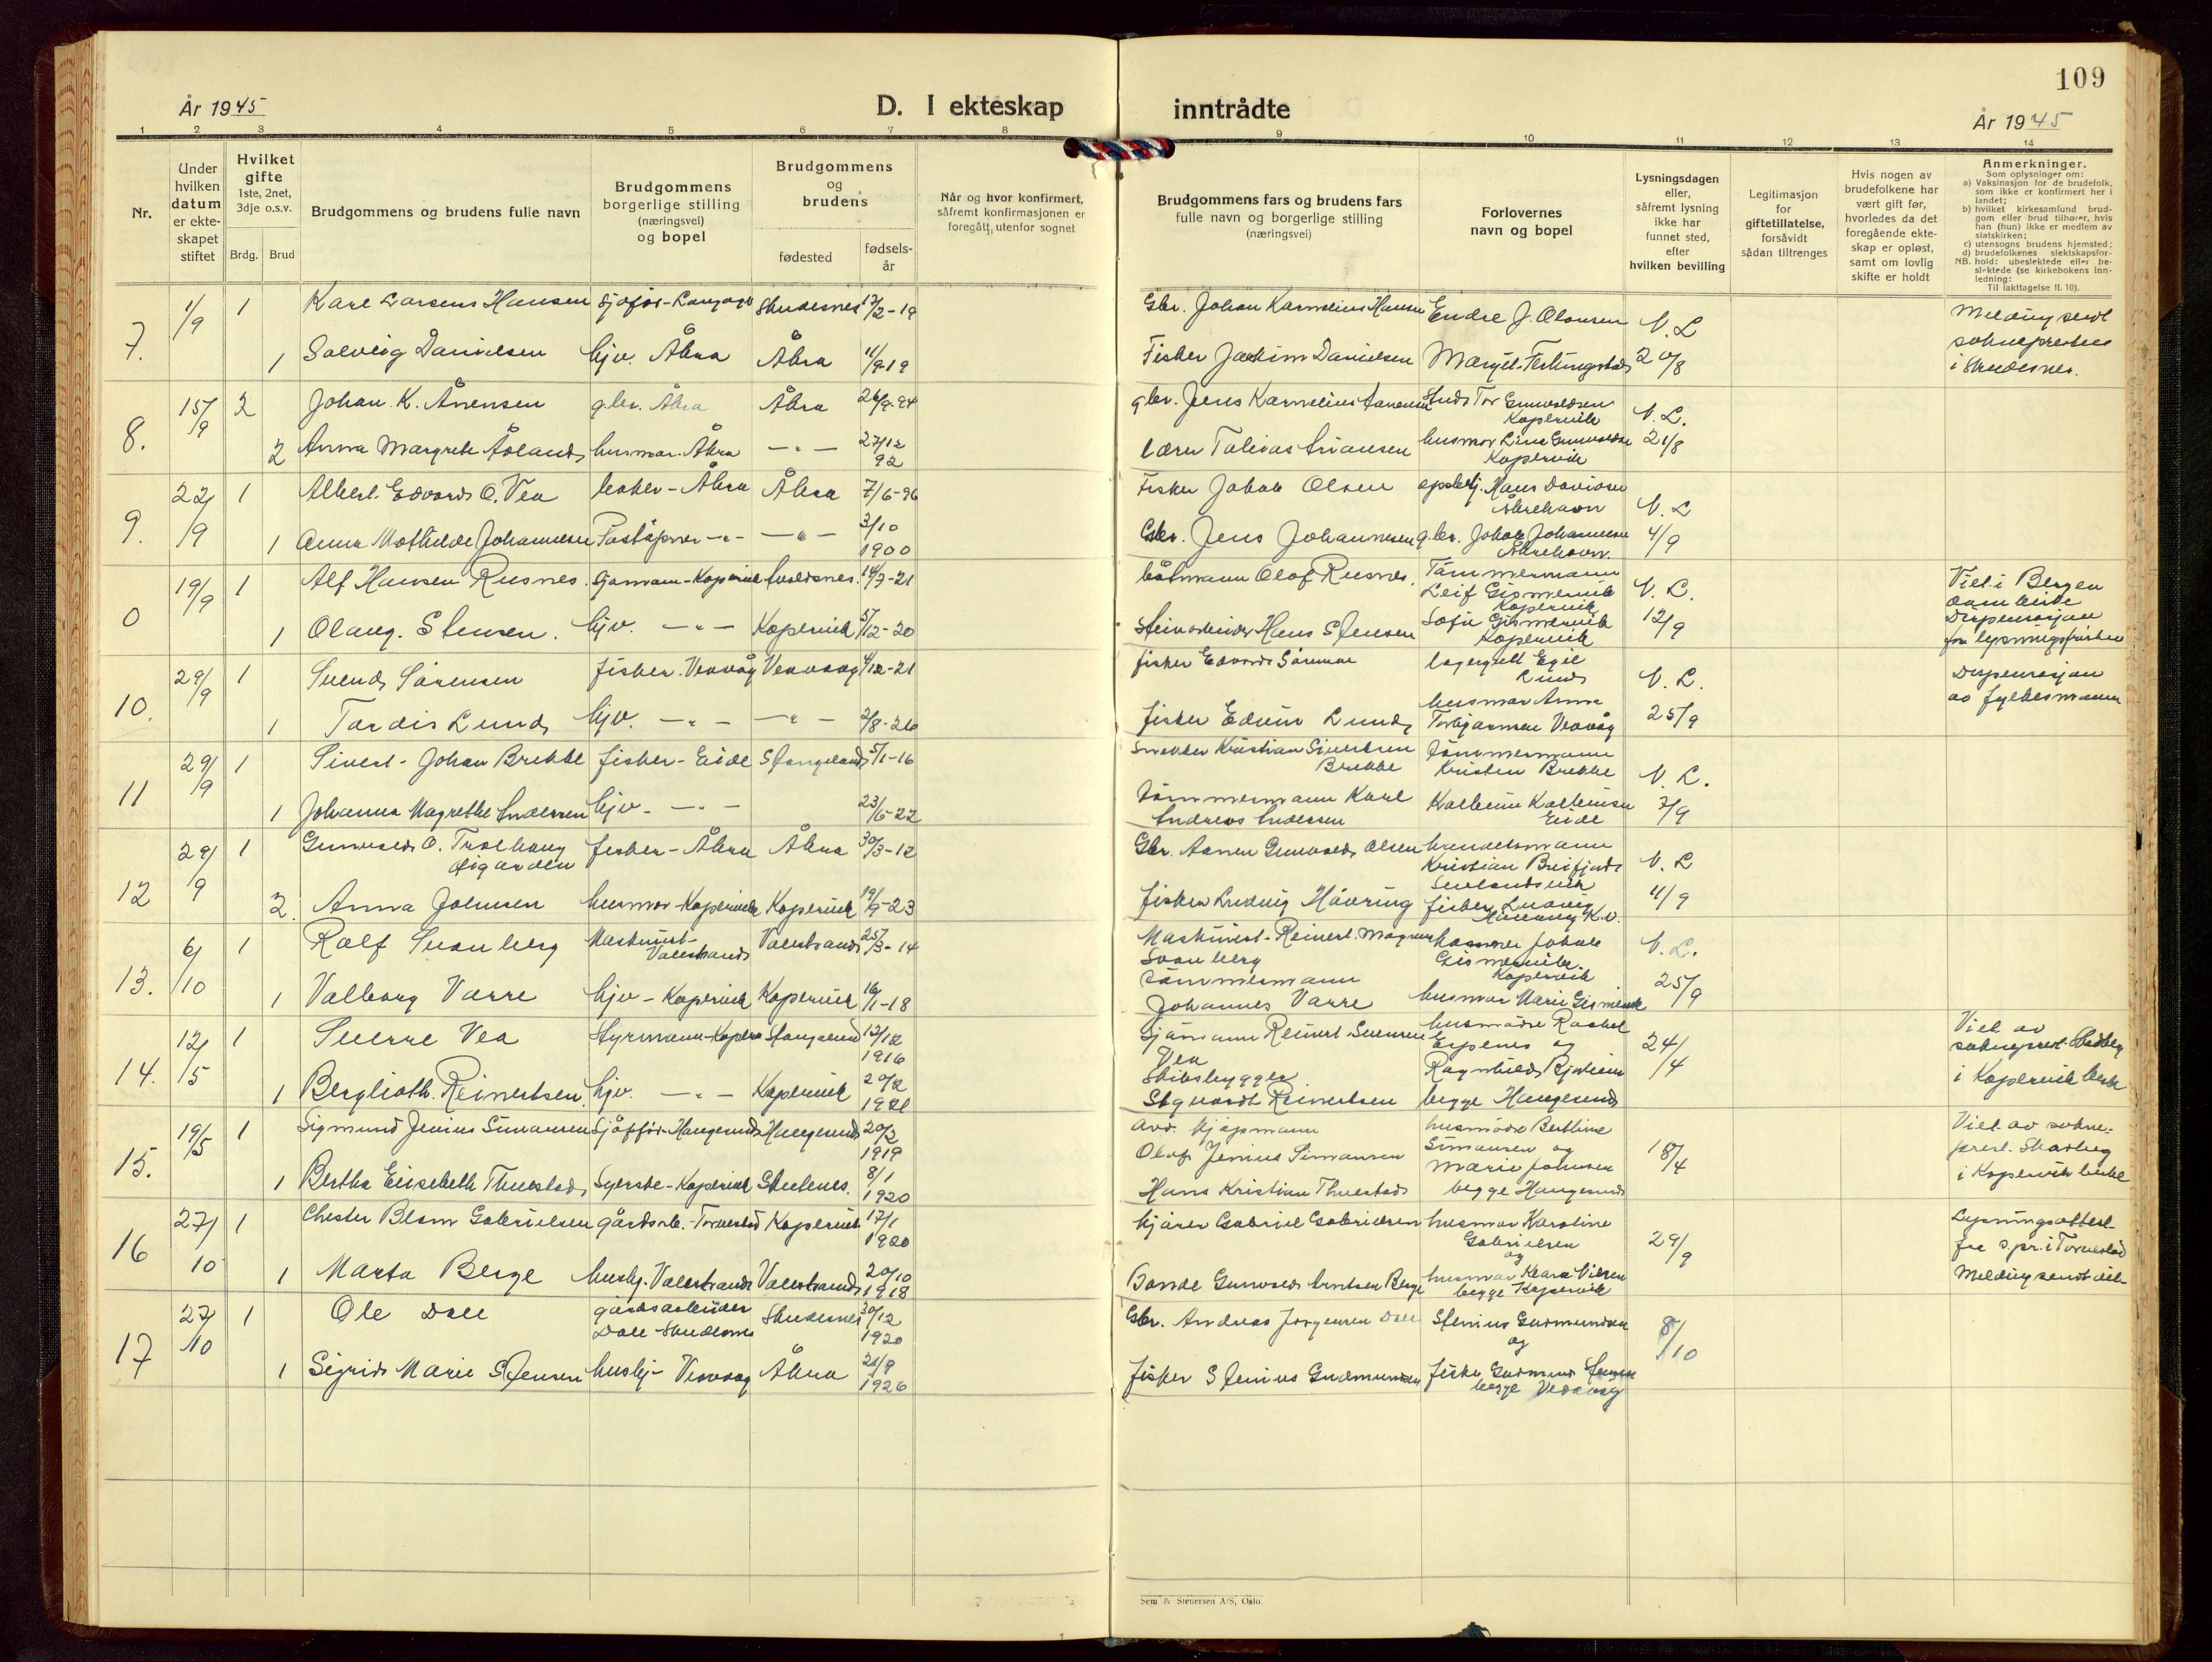 109
År 1945
D. I ekteskap
inntrådte
År 1945
1 2 3 4 5 6 7 8 9 10 11 12 13 14
Nr.
Under
hvilken
datum
er ekte-
skapet
stiftet
Hvilket
gifte
1ste, 2net,
3dje o.s.v.
Brdg. Brud
Brudgommens og brudens fulle navn
Brudgommens
borgerlige stilling
(næringsvei)
og bopel
Brudgommens
og
brudens
fødested
fødsels-
år
Når og hvor konfirmert,
såfremt konfirmasjonen er
foregått, utenfor sognet
Brudgommens fars og brudens fars
fulle navn og borgerlige stilling
(næringsvei)
Forlovernes
navn og bopel
Lysningsdagen
eller,
såfremt lysning
ikke har
funnet sted,
efter
hvilken bevilling
Legitimasjon
for
giftetillatelse,
forsåvidt
sådan tiltrenges
Hvis nogen av
brudefolkene har
vært gift før,
hvorledes da det
foregående ekte-
skap er opløst,
samt om lovlig
skifte er holdt
Anmerkninger.
Som oplysninger om:
a) Vaksinasjon for de brudefolk,
som ikke er konfirmert her i
landet;
b) hvilket kirkesamfund brud-
gom eller brud tilhører, hvis
han (hun) ikke er medlem av
statskirken;
c) utensogns brudens hjemsted;
d) brudefolkenes slektskapsfor-
NB. hold: ubeslektede eller be-
slektede (se kirkebokens inn-
ledning:
Til iakttagelse II. 10).
7. 1/9 1 Kare Larsens Hansen Sjøfør- Skudesnes 17/2-19 Gbr. Johan Kornelius Hansen Endre J. Olausen V. L Melding sendt
soknepresten
i Skudesnes.
1 Solveig Danielsen hjv. Åkra Åkra 11/9-19 Fisker Joakim Danielsen Margit Ferkingstad 20/8
8. 15/9 2 Johan K. Ånensen gbr. Åkra Åkra 26/9-94 gbr. Jens Kornelius Stud. Tor Gunvaldsen
Kopervik V. L.
2 Anna Margrete Åsland husmor. Åkra - " - 27/12
92 Lærer Tobias husmor Lina Gunvaldsen
Kopervik 21/8
9. 22/9 1 Albert Edvard O. Vea - Åkra Åkra 7/6-96 Fisker Jakob Olsen Hans Davidsen
Åkrehavn V. L
1 Anna Mathilde Johannesen - " - - " - 3/10
1900 Gbr. Jens Johannesen gbr. Jakob Johannesen
Åkrehavn. 4/9
0 19/9 1 Alf Hansen Rusnes. - Kopervik Avaldsnes. 14/7-21 båtmann Olaf Rusnes. Tømmermann
Leif Gismervik
Kopervik V. L. Viet i Bergen
domkirke
Dispensasjon
fra lysningsfristen
1 Olaug. Stensen. hjv. - " - Kopervik 5/12-20 Steinarbeider Hans Stensen Sofie Gismervik
Kopervik 12/9
10. 29/9 1 Svend Sørensen fisker. Veavåg Veavaag 4/12-21 fisker Edvard Sørensen Egil
Lund V. L. Dispensasjon
av fylkesmann
1 Tordis Lund hjv. - " - - " - 2/8-26 fisker Edvin Lund husmor Anna
Torbjørnsen Veavåg 25/9
11 29/9 1 Sivert Johan Brekke fisker - Eide Stangeland 5/1-16 Snekker Kristian Sivertsen
Brekke Tømmermann
Kristen Brekke V. L.
1 Johanna Magrethe Andersen hjv - - " - 23/6-22 Tømmermann Karl
Andreas Andersen Kolbein Kolbeinsen
Eide 7/9
12 29/9 1 Gunvald O. Fisker - Åkra Åkra 30/3-12 Gbr. Aanen Gunvald Olsen handelsmann
Kristian Breifjord
V. L
2 Anna Johnsen husmor - Kopervik Kopervik 19/9-23 fisker Ludvig Håvring fisker Ludvig
4/9
13. 6/10 1 Rolf Svanberg Maskinist-
Valestrand Valestrand 25/3-14 Maskinist Reinert Magnus
Svanberg Jakob
Gismervik
Kopervik V. L.
1 Valborg Varre hjv - Kopervik Kopervik 16/1-18 tømmermann
Johannes Varre husmor Marie Gismervik 25/9
14. 12/5 1 Sverre Vea Styrmann - Kopervik Stangeland 13/12
1916 Sjømann Reinert Svensen
Vea husmødre Rachel
Espenes og 24/4 Viet av
sokneprest Skadberg
i Kopervik kirke
1 Bergljoth Reinertsen. hjv. - " - Kopervik 20/2
1921 Skibsbygger
Sigvardt Reinertsen Ragnhild
begge Haugesund
15. 19/5 1 Sigmund Jenius Simonsen Sjåfør - Haugesund Haugesund 20/2
1919 Avd. kjøpmann
Olaf Jenius Simonsen husmødre Berthine
Simonsen og 18/4 Viet av sokne-
prest Skadberg
i Kopervik kirke
1 Bertha Elisebeth Thuestad Syerske - Kopervik Skudenes. 8/1
1920 Hans Kristian Thuestad Marie Johnsen
begge Haugesund
16 27/10 1 Chester Blom Gabrielsen gårdsarb. - Torvestad Kopervik 17/1
1920 kjører Gabriel Gabrielsen husmor Karoline
Gabrielsen
og 29/9 Lysningsattest
fra s.pr. i Torvestad
1 Marta Berge hushj. Valestrand Valestrand 20/10
1918 Bonde Gunvald Berge husmor Klara Nilsen
begge Kopervik Melding sendt dit
17 27/10 1 Ole Dale gårdsarbeider
Dale - Skudesnes Skudesnes 30/12
1920 Gbr. Andreas Jørgensen Dale Stenius Gudmundsen
og 8/10
1 Sigrid Marie Stensen hushj - Veavaag Åkra 21/9
1926 fisker Stenius Gudmundsen fisker Gudmund
begge Vedavåg
Sem & Stenersen A/S, Oslo.